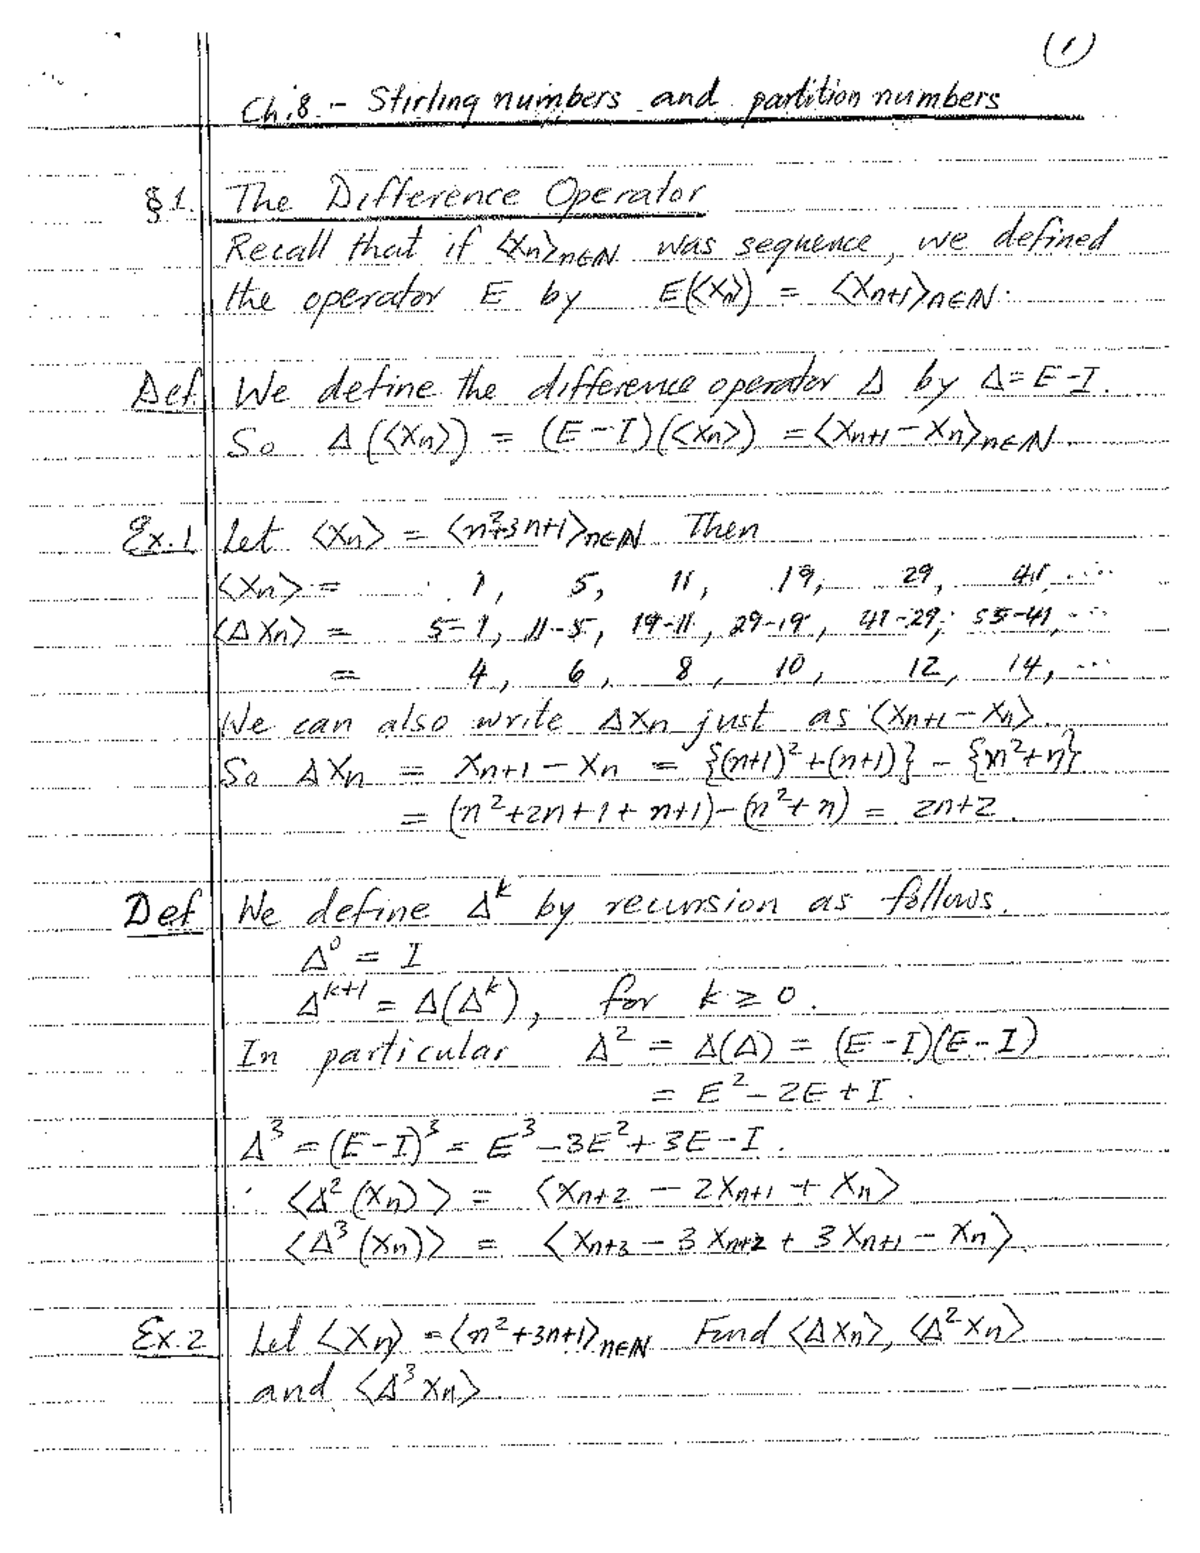 (1)
Ch.8 :- Stirling numbers and partition numbers
§1. The Difference Operator
Recall that if ⟨Xn⟩n∈ℕ was sequence, we defined
the operator E by E(⟨Xn⟩) = ⟨Xn+1⟩n∈ℕ.
Def. We define the difference operator Δ by Δ = E-I.
So Δ(⟨Xn⟩) = (E-I)(⟨Xn⟩) = ⟨Xn+1 - Xn⟩n∈ℕ.
Ex.1 Let ⟨Xn⟩ = ⟨n²+3n+1⟩n∈ℕ Then
⟨Xn⟩ = 1, 5, 11, 19, 29, 41, ...
⟨ΔXn⟩ = 5-1, 11-5, 19-11, 29-19, 41-29, 55-41, ...
= 4, 6, 8, 10, 12, 14, ...
We can also write ΔXn just as ⟨Xn+1 - Xn⟩.
So ΔXn = Xn+1 - Xn = {(n+1)²+(n+1)} - {n²+n}
= (n²+2n+1+n+1)-(n²+n) = 2n+2.
Def. We define Δᵏ by recursion as follows.
Δ⁰ = I
Δᵏ⁺¹ = Δ(Δᵏ), for k ≥ 0.
In particular Δ² = Δ(Δ) = (E-I)(E-I)
= E² - 2E + I.
Δ³ = (E-I)³ = E³ - 3E² + 3E - I.
∴ ⟨Δ²(Xn)⟩ = ⟨Xn+2 - 2Xn+1 + Xn⟩
⟨Δ³(Xn)⟩ = ⟨Xn+3 - 3Xn+2 + 3Xn+1 - Xn⟩.
Ex.2 Let ⟨Xn⟩ = ⟨n²+3n+1⟩n∈ℕ Find ⟨ΔXn⟩, ⟨Δ²Xn⟩
and ⟨Δ³Xn⟩.